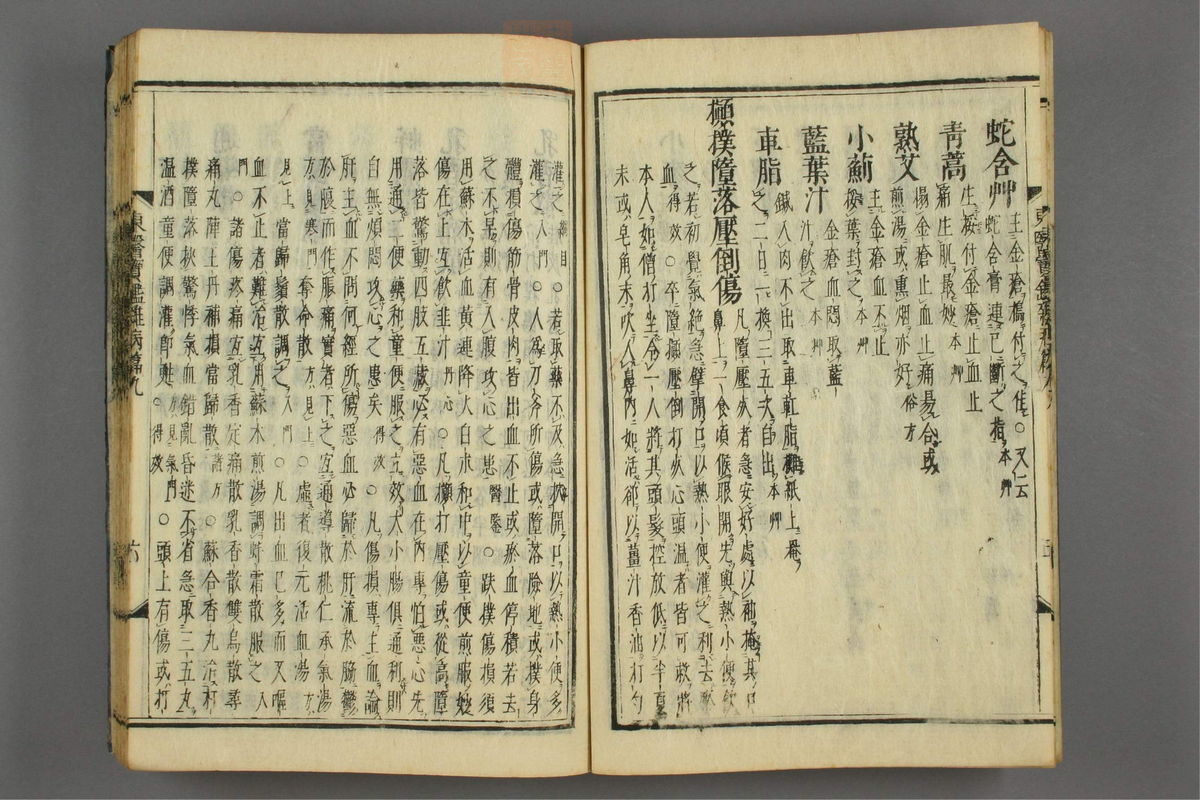 蛇含艸 主金瘡搗付之佳○又云蛇含膏連已斷之指本艸
青蒿 生挼付金瘡止血止痛生肌最妙本艸
熟艾 主金瘡止血止痛湯合或煎湯或熏烟亦好俗方
小薊 主金瘡血不止挼葉封之本艸
藍葉汁 金瘡血悶取藍汁飲之本艸
車脂 鍼入肉不出取車缸脂攤紙上卷之二日一換三五次自出本艸
攧撲墮落壓倒傷 凡墮壓死者急安好處以袖掩其口鼻上一食頃候眼開先與熱小便飲
之若初覺氣絶急擘開口以熱小便灌之利去瘀
血得效○卒墮攧壓倒打死心頭温者皆可救將
本人如僧打坐令一人將其頭髮控放低以半夏
末或皂角末吹入鼻內如活却以薑汁香油打勻
灌之綱目○若取藥不及急挖開口以熱小便多
灌之入門○人爲刀斧所傷或墮落險地或撲身
體損傷筋骨皮肉皆出血不止或瘀血停積若去
之不早則有入腹攻心之患醫鑒○跌撲傷損須
用蘇木活血黃連降火白朮和中以童便煎服妙
傷在上宜飲韭汁丹心○凡攧打壓傷或從高墮
落皆驚動四肢五藏必有惡血在內專怕惡心先
用通二便藥和童便服之立效大小腸俱通利則
自無煩悶攻心之患矣得效○凡傷損專主血論
肝主血不問何經所傷惡血必歸於肝流於脇鬱
於腹而作脹痛實者下之宜通導散桃仁承氣湯
方見寒門奪命散方見上虛者復元活血湯方
見上當歸鬚散調之入門○凡出血已多而又嘔
血不止者難治宜用蘇木煎湯調蚌霜散服之入
門○諸傷疼痛宜乳香定痛散乳香散雙烏散尋
痛丸薄主丹補損當歸散諸方○蘇合香丸治打
撲墮落挾驚悸氣血錯亂昏迷不省急取三五丸
温酒童便調灌卽甦方見氣門得效○頭上有傷或打
東醫寶鑑雜病篇九
六